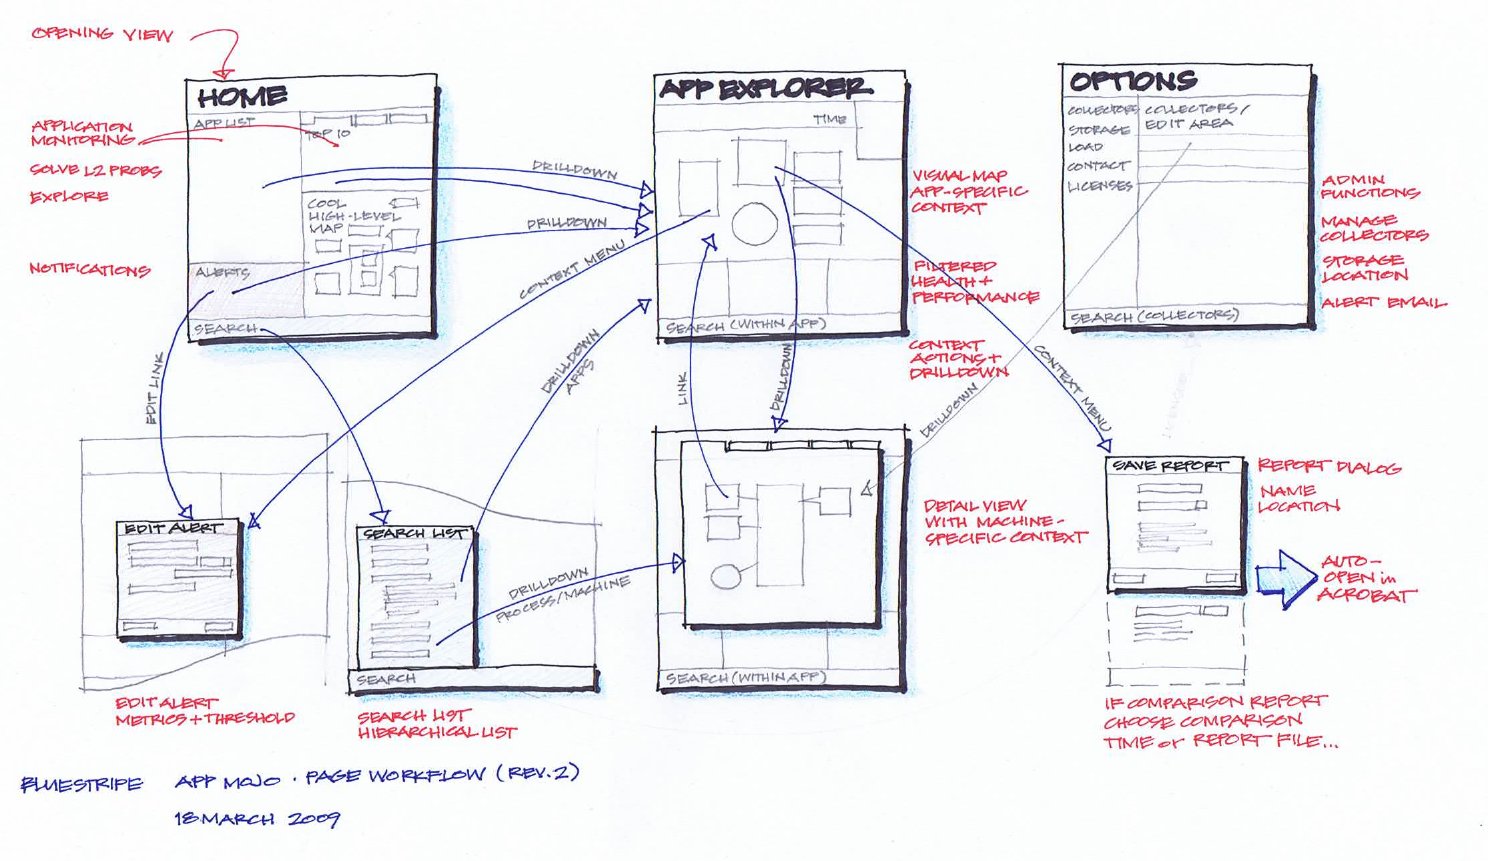 OPENING VIEW
HOME
APP LIST
TOP 10
APPLICATION
MONITORING
SOLVE L2 PROBS
EXPLORE
COOL
HIGH-LEVEL
MAP
NOTIFICATIONS
ALERTS
SEARCH
DRILLDOWN
DRILLDOWN
CONTEXT MENU
EDIT LINK
DRILLDOWN
APPS
APP EXPLORER
TIME
VISUAL MAP
APP-SPECIFIC
CONTEXT
FILTERED
HEALTH +
PERFORMANCE
SEARCH (WITHIN APP)
CONTEXT
ACTIONS +
DRILLDOWN
LINK
DRILLDOWN
DRILLDOWN
CONTEXT MENU
OPTIONS
COLLECTORS
STORAGE
LOAD
CONTACT
LICENSES
COLLECTORS /
EDIT AREA
SEARCH (COLLECTORS)
ADMIN
FUNCTIONS
MANAGE
COLLECTORS
STORAGE
LOCATION
ALERT EMAIL
EDIT ALERT
EDIT ALERT
METRICS + THRESHOLD
SEARCH LIST
SEARCH
SEARCH LIST
HIERARCHICAL LIST
DRILLDOWN
PROCESS/MACHINE
SEARCH (WITHIN APP)
DETAIL VIEW
WITH MACHINE-
SPECIFIC CONTEXT
SAVE REPORT
REPORT DIALOG
NAME
LOCATION
AUTO-
OPEN in
ACROBAT
IF COMPARISON REPORT
CHOOSE COMPARISON
TIME or REPORT FILE...
BLUESTRIPE APP MOJO · PAGE WORKFLOW (REV. 2)
18 MARCH 2009